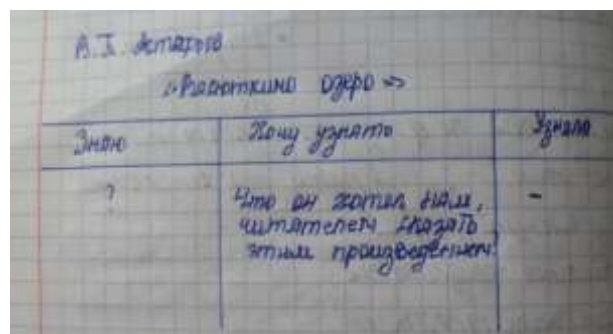 В.П. Астафьев.
«Васюткино озеро»
Знаю Хочу узнать Узнала
? Что он хотел нам, -
читателем сказать
этим произведением?